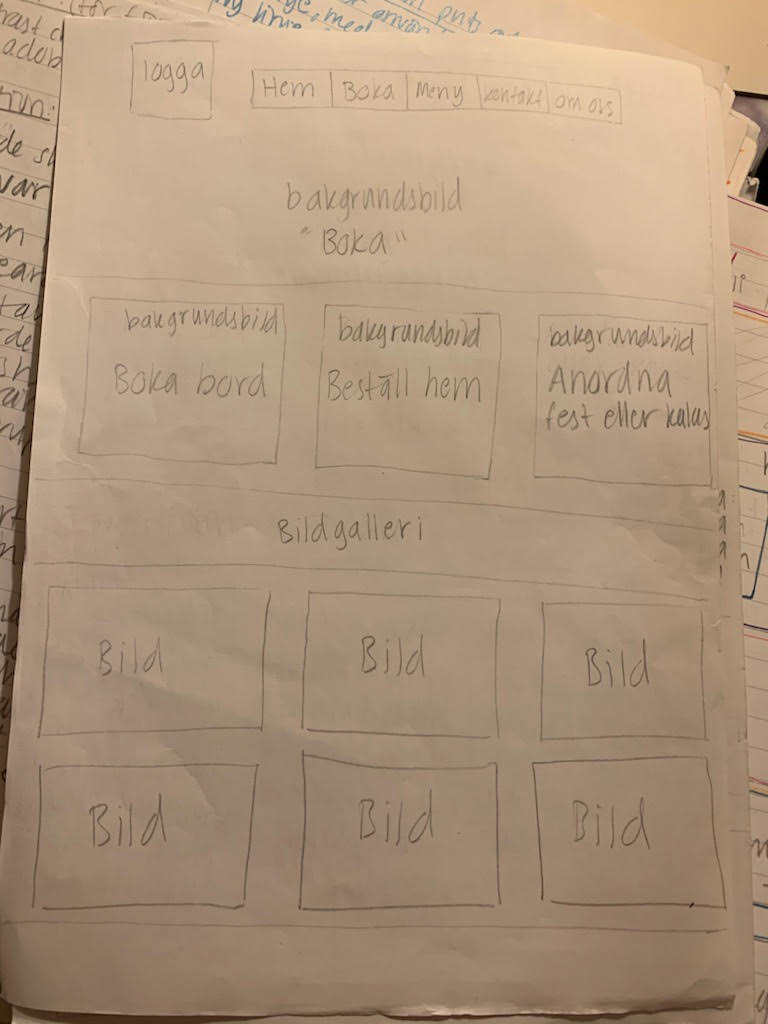 logga
Hem Boka Meny kontakt om oss
bakgrundsbild
"Boka"
bakgrundsbild
Boka bord
bakgrundsbild
Beställ hem
bakgrundsbild
Anordna
fest eller kalas
Bildgalleri
Bild Bild Bild
Bild Bild Bild